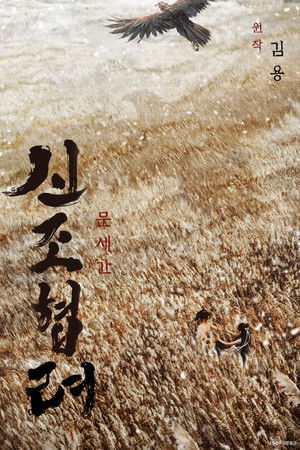 원작
김용
신조협려
문세간